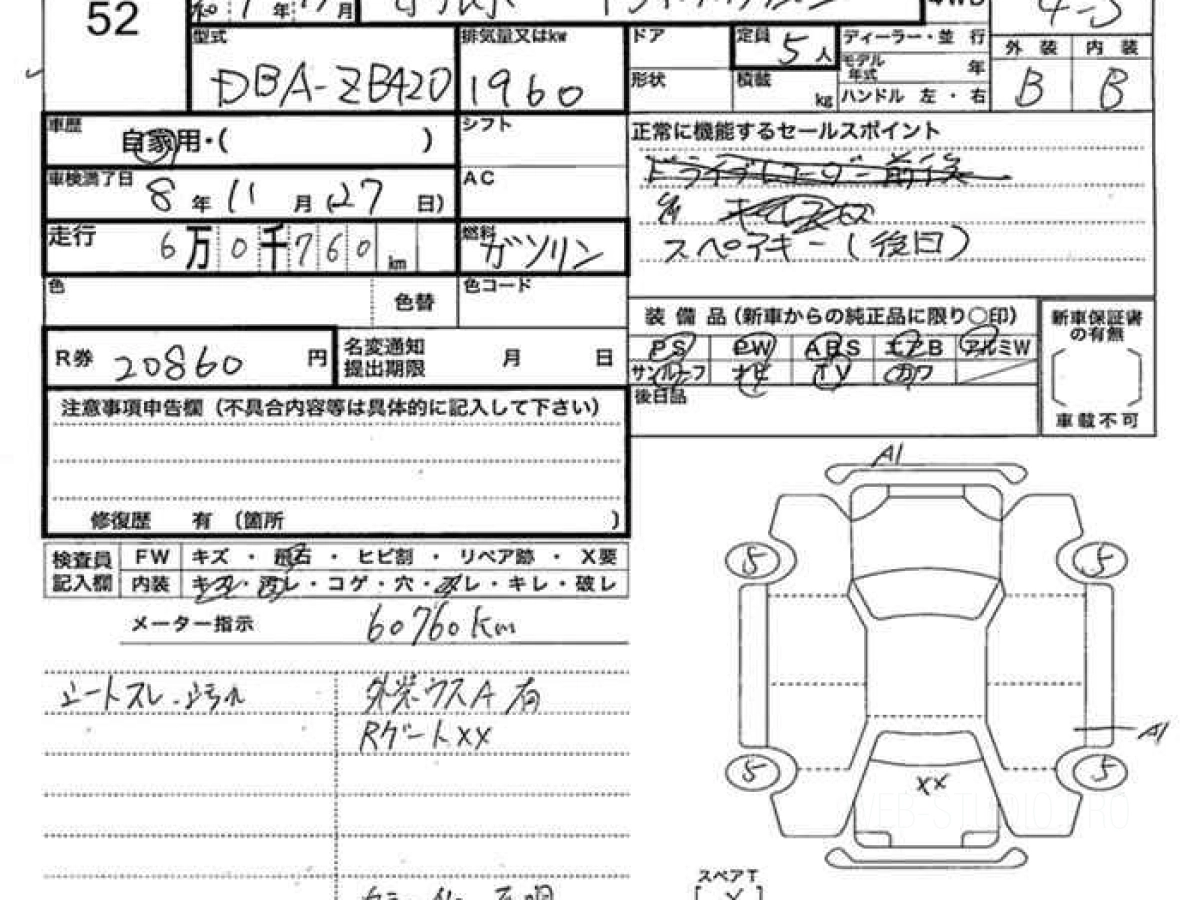 52
年 月
型式
DBA-ZBA20
排気量又はkw
1960
ドア
形状
定員 5人
積載 kg
ディーラー・並 行
モデル年式 年
ハンドル 左・右
外 装 内 装
B B
車歴
自家用・( )
シフト
正常に機能するセールスポイント
ドライブレコーダー前後
スペアキー(後日)
車検満了日
8年11月(27日)
AC
走行
6万0千760km
燃料
ガソリン
色
色替
色コード
装 備 品(新車からの純正品に限り○印)
PS PW ABS エアB アルミW
サンルーフ ナビ TV カワ
後日品
新車保証書の有無
車載不可
R券 20860円
名変通知提出期限 月 日
注意事項申告欄(不具合内容等は具体的に記入して下さい)
修復歴 有 (箇所 )
検査員記入欄
FW キズ・飛石・ヒビ割・リペア跡・X要
内装 キズ・汚レ・コゲ・穴・スレ・キレ・破レ
メーター指示 60760km
シートスレ・汚れ
外装ウスA有
RゲートXX
A1
5 5
A1
5 5
XX
スペアT